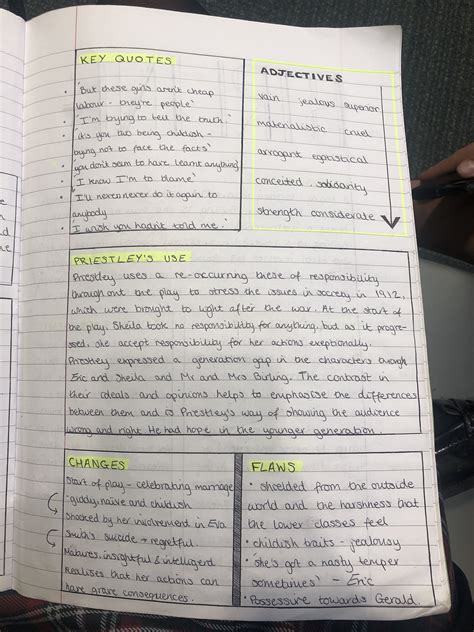 KEY QUOTES
• 'But these girls aren't cheap
labour - they're people'
• 'I'm trying to tell the truth.'
• 'it's you two being childish -
trying not to face the facts'
• 'you don't seem to have learnt anything'
• 'I know I'm to blame'
• 'I'll never never do it again to
anybody
• 'I wish you hadn't told me.'
ADJECTIVES
vain jealous superior
materialistic cruel
arrogant egotistical
conceited solidarity
strength considerate
PRIESTLEY'S USE
Priestley uses a re-occurring theme of responsibility
throughout the play to stress the issues in society in 1912,
which were brought to light after the war. At the start of
the play, Sheila took no responsibility for anything, but as it progre-
ssed, she accept responsibility for her actions exeptionally.
Priestley expressed a generation gap in the characters through
Eric and Sheila and Mr and Mrs Birling. The contrast in
their ideals and opinions helps to emphasise the differences
between them and is Priestley's way of showing the audience
wrong and right. He had hope in the younger generation.
CHANGES
Start of play - celebrating marriage
- giddy, naive and childish
Shocked by her involvement in Eva
Smith's suicide → regretful.
Matures, insightful & intelligent
Realises that her actions can
have grave consequences.
FLAWS
• shielded from the outside
world and the harshness that
the lower classes feel
• childish traits - jealousy
• 'she's got a nasty temper
sometimes' - Eric
• Possessure towards Gerald.